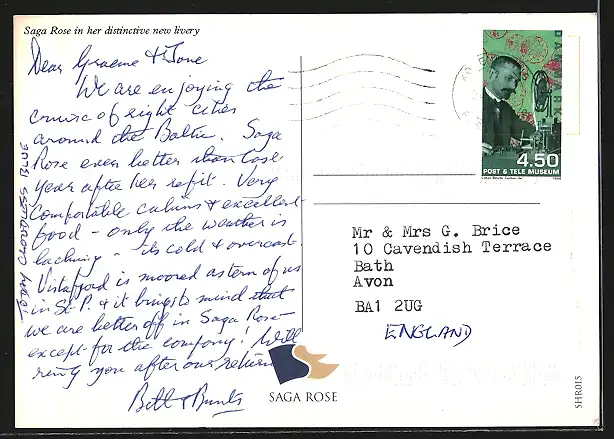 Saga Rose in her distinctive new livery
Dear Graeme & Jane
We are enjoying the
cruise of eight cities
around the Baltic. Saga
Rose even better than last
year after her refit. Very
comfortable cabins & excellent
food - only the weather is
lacking - its cold & overcast.
Vistafjord is moored astern of us
in St. P. & it brings to mind that
we are better off in Saga Rose
except for the company! Will
ring you after our return
TODAY CLOUDLESS BLUE
DANMARK
4.50
POST & TELE MUSEUM
Mr & Mrs G. Brice
10 Cavendish Terrace
Bath
Avon
BA1 2UG
ENGLAND
SAGA ROSE
SHR015